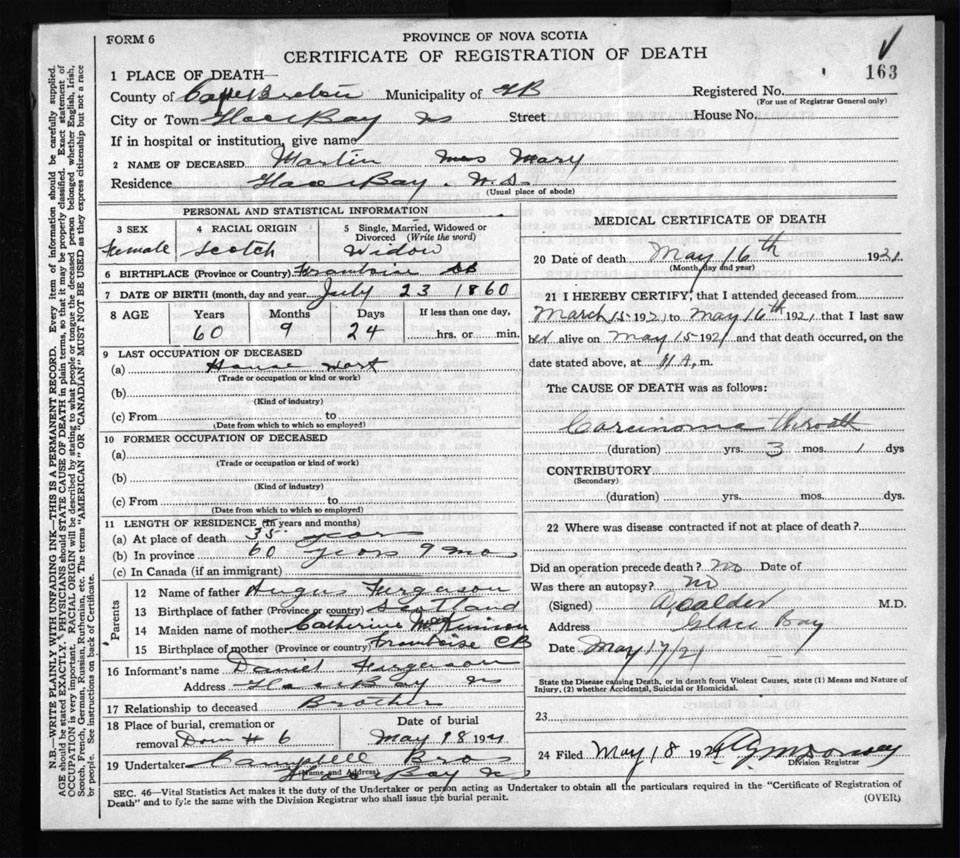 FORM 6
PROVINCE OF NOVA SCOTIA
CERTIFICATE OF REGISTRATION OF DEATH
163
1 PLACE OF DEATH—
County of Cape Breton Municipality of CB Registered No.
(For use of Registrar General only)
City or Town Glace Bay NS Street House No.
If in hospital or institution, give name
2 NAME OF DECEASED Martin Mrs Mary
Residence Glace Bay. N.S.
(Usual place of abode)
PERSONAL AND STATISTICAL INFORMATION
3 SEX 4 RACIAL ORIGIN 5 Single, Married, Widowed or Divorced (Write the word)
Female Scotch Widow
6 BIRTHPLACE (Province or Country) Framboise CB
7 DATE OF BIRTH (month, day and year July 23 1860
8 AGE Years Months Days If less than one day,
60 9 24 hrs. or min.
9 LAST OCCUPATION OF DECEASED
(a) House work
(Trade or occupation or kind or work)
(b)
(Kind of industry)
(c) From to
(Date from which to which so employed)
10 FORMER OCCUPATION OF DECEASED
(a)
(Trade or occupation or kind of work)
(b)
(Kind of industry)
(c) From to
(Date from which to which so employed)
11 LENGTH OF RESIDENCE (In years and months)
(a) At place of death 35 years
(b) In province 60 years 9 mo
(c) In Canada (if an immigrant)
Parents
12 Name of father Angus Ferguson
13 Birthplace of father (Province or country) Scotland
14 Maiden name of mother Catherine McKinnon
15 Birthplace of mother (Province or country) Framboise CB
16 Informant's name Daniel Fergerson
Address Glace Bay NS
17 Relationship to deceased Brother
18 Place of burial, cremation or removal Dom # 6
Date of burial May 18 1921
19 Undertaker Campbell Bros
(Name and Address) Glace Bay NS
MEDICAL CERTIFICATE OF DEATH
20 Date of death May 16th 1921.
(Month, day and year)
21 I HEREBY CERTIFY, that I attended deceased from
March 15 1921 to May 16th 1921, that I last saw
her alive on May 15 1921 and that death occurred, on the
date stated above, at 11 A. m.
The CAUSE OF DEATH was as follows:
Carcinoma throath
(duration) yrs. 3 mos. 1 dys
CONTRIBUTORY
(Secondary)
(duration) yrs. mos. dys.
22 Where was disease contracted if not at place of death?
Did an operation precede death? No Date of
Was there an autopsy? No
(Signed) A Calder M.D.
Address Glace Bay
Date May 17/21
State the Disease causing Death, or in death from Violent Causes, state (1) Means and Nature of
Injury, (2) whether Accidental, Suicidal or Homicidal.
23
24 Filed May 18 1921
Division Registrar
SEC. 46—Vital Statistics Act makes it the duty of the Undertaker or person acting as Undertaker to obtain all the particulars required in the "Certificate of Registration of
Death" and to fyle the same with the Division Registrar who shall issue the burial permit.
(OVER)
N.B.—WRITE PLAINLY WITH UNFADING INK—THIS IS A PERMANENT RECORD. Every item of information should be carefully supplied.
AGE should be stated EXACTLY. PHYSICIANS should STATE CAUSE OF DEATH in plain terms, so that it may be properly classified. Exact statement of
OCCUPATION is very important. RACIAL ORIGIN will be described by stating to what people or tongue the deceased person belonged whether English, Irish,
Scotch, French, German, Russian, Ruthenian, etc. The terms "AMERICAN" OR "CANADIAN" MUST NOT BE USED as they express citizenship but not a race
or people. See instructions on back of Certificate.